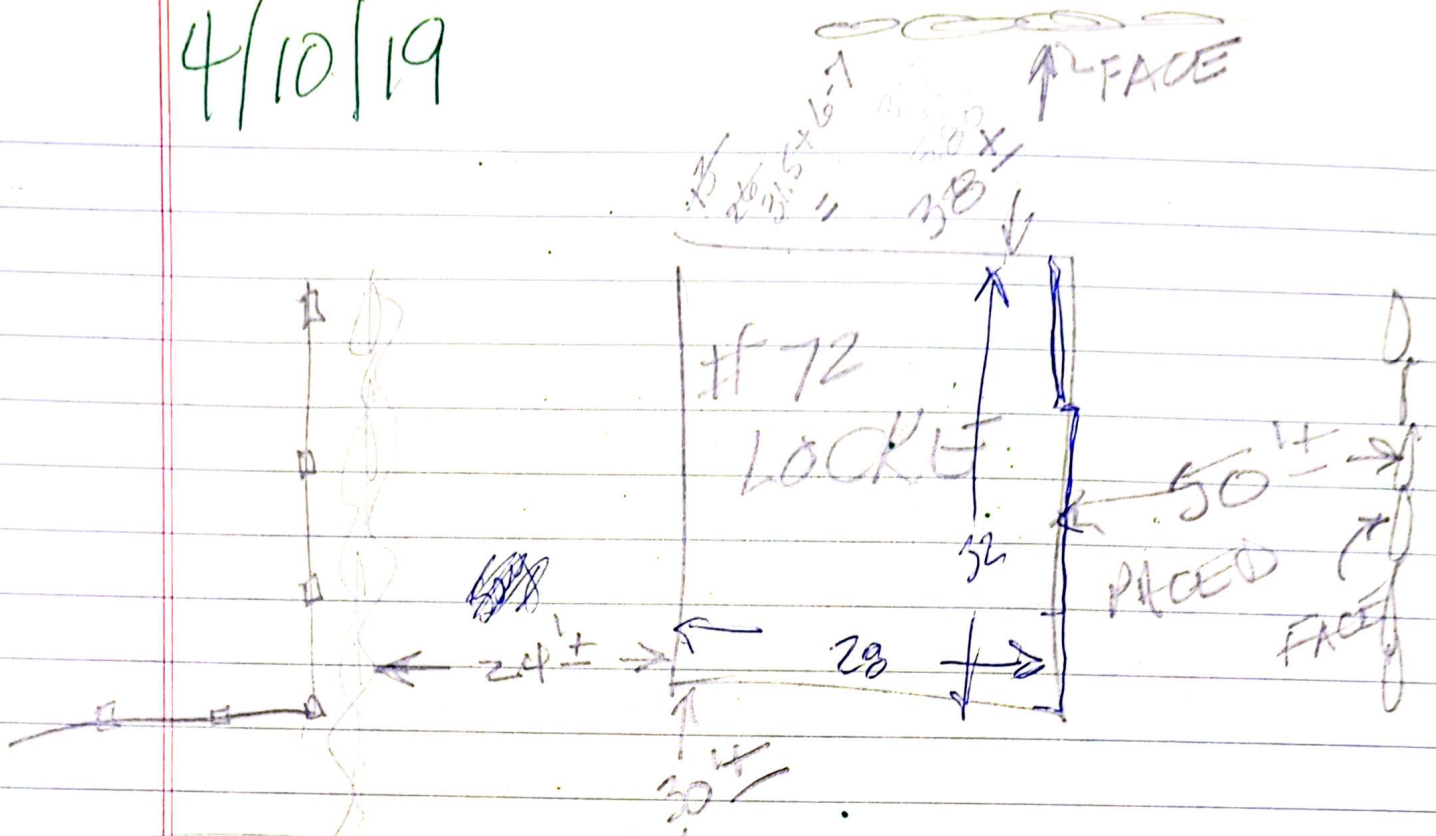 4/10/19
FACE
38'±
#72
LOCKE
50'±
32
PACED
FACE
24'±
28
30'±